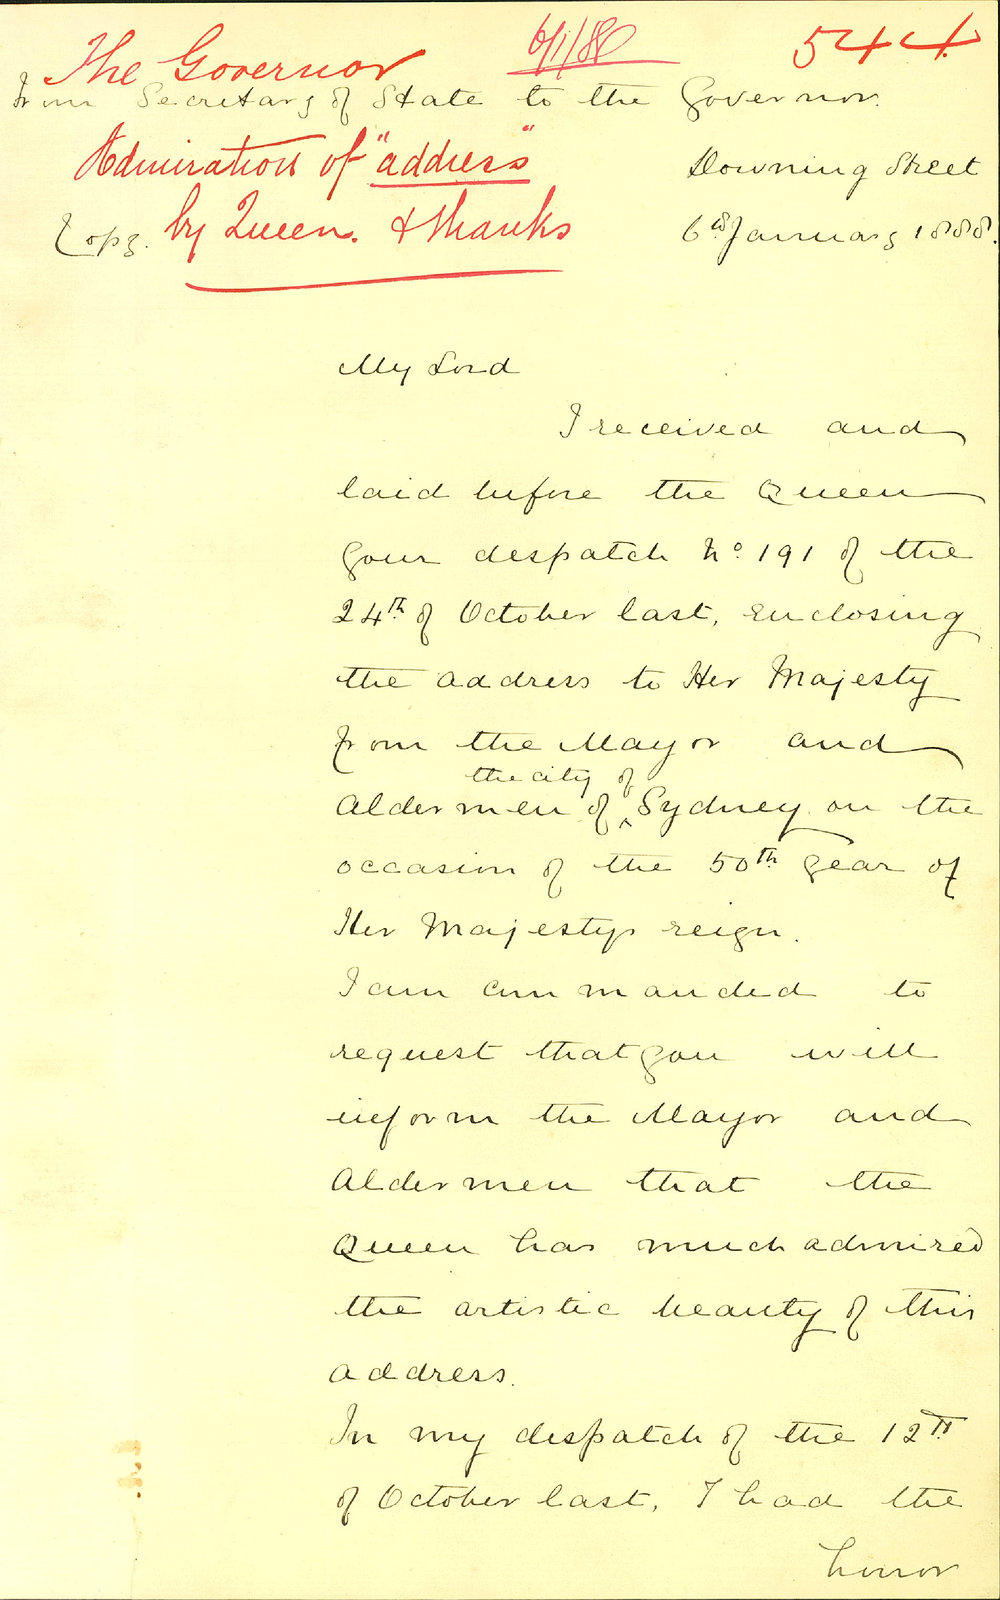 The Governor 6/1/88 544
From Secretary of State to the Governor.
Admiration of "address" Downing Street
Copy. by Queen. & thanks 6th January 1888.
My Lord
I received and
laid before the Queen
your despatch No. 191 of the
24th of October last, enclosing
the address to Her Majesty
from the Mayor and
the city of
Aldermen of ^ Sydney on the
occasion of the 50th year of
Her Majestys reign.
I am commanded to
request that you will
inform the Mayor and
Aldermen that the
Queen has much admired
the artistic beauty of this
address.
In my despatch of the 12th
of October last, I had the
honor